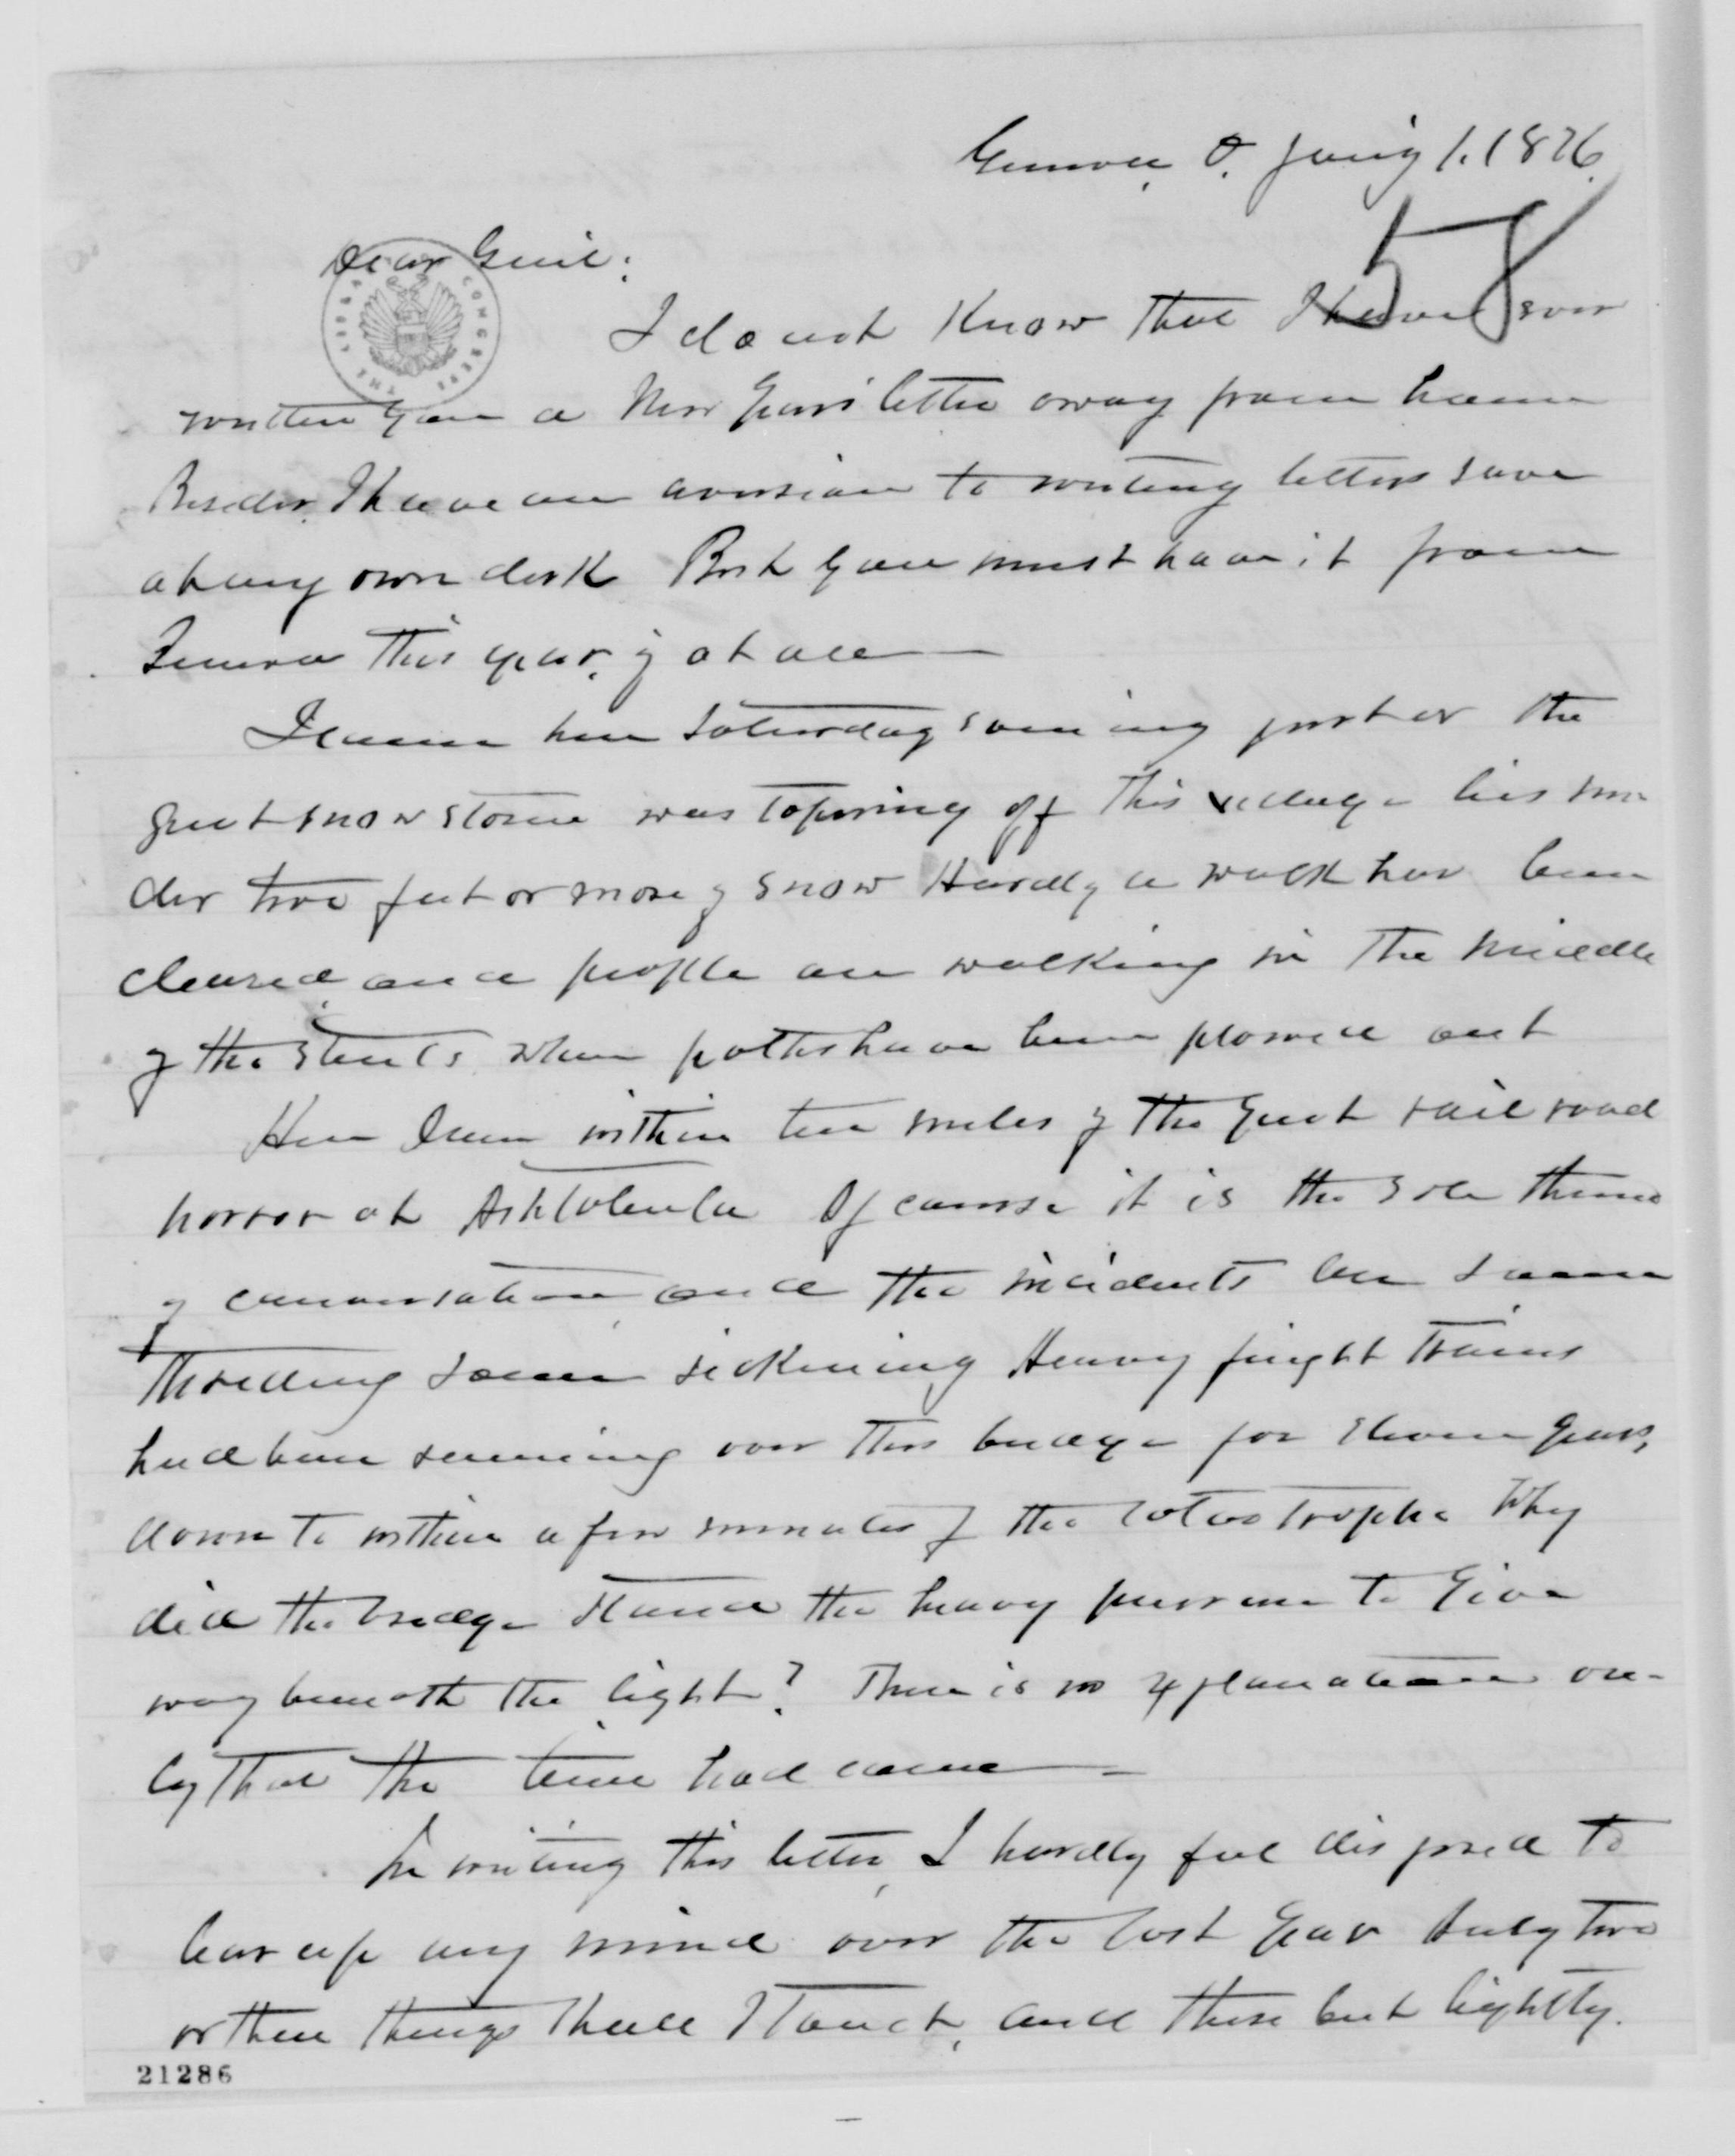 Geneva, O. Jan'y 1. 1876.
58
Dear Genl:
I do not know that I have ever
written you a New Years letter away from home
Besides, I have an aversion to writing letters save
at my own desk But you must have it from
Geneva this year, if at all —
I came here Saturday evening just as the
great snow storm was tapering off This village lies un
der two feet or more of snow Hardly a walk has been
cleared and people are walking in the middle
of the streets where paths have been plowed out
Here I am within ten miles of the great rail road
horror at Ashtabula Of course it is the sole theme
of conversation and the incidents are some
thrilling some sickening Heavy freight trains
had been running over this bridge for eleven years,
down to within a few minutes of the catastrophe Why
did the bridge stand the heavy pressure to give
way beneath the light? There is no explanation on-
ly that the time had come —
In writing this letter, I hardly feel disposed to
bear up my mind over the last year Only two
or three things shall I touch, and these but lightly.
21286
THE LIBRARY CONGRESS